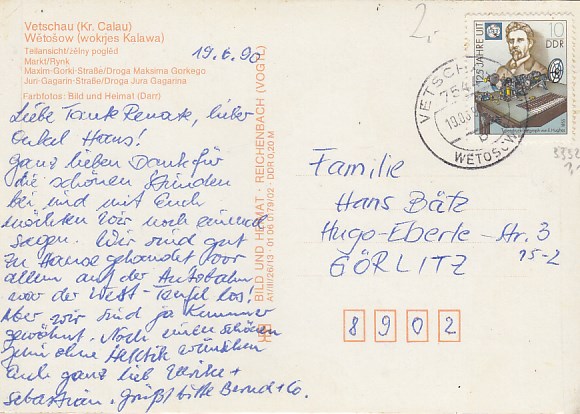 Vetschau (Kr. Calau)
Wětošow (wokrjes Kalawa)
Teilansicht/źělny poglěd
Markt/Rynk
Maxim-Gorki-Straße/Droga Maksima Gorkego
Juri-Gagarin-Straße/Droga Jura Gagarina
Farbfotos: Bild und Heimat (Darr)
19.6.90
Liebe Tante Renate, lieber
Onkel Hans!
Ganz lieben Dank für
die schönen Stunden
bei und mit Euch
möchten wir noch einmal
sagen. Wir sind gut
zu Hause gelandet vor
allem auf der Autobahn
war der West-Teufel los!
Aber wir sind ja Kummer
gewöhnt. Noch einen schönen
Juni ohne Hektik wünschen
Euch ganz lieb Ulrike +
Sebastian. Grüßt bitte Bernd + Co.
BILD UND HEIMAT · REICHENBACH (VOGTL)
A1/III/26/13 01 06 0179/02 DDR 0,20 M
2,-
125 JAHRE UIT
10
DDR
VETSCHAU
754
WETOŠOW
Familie
Hans Bätz
Hugo-Eberle-Str. 3
15-2
GÖRLITZ
8902